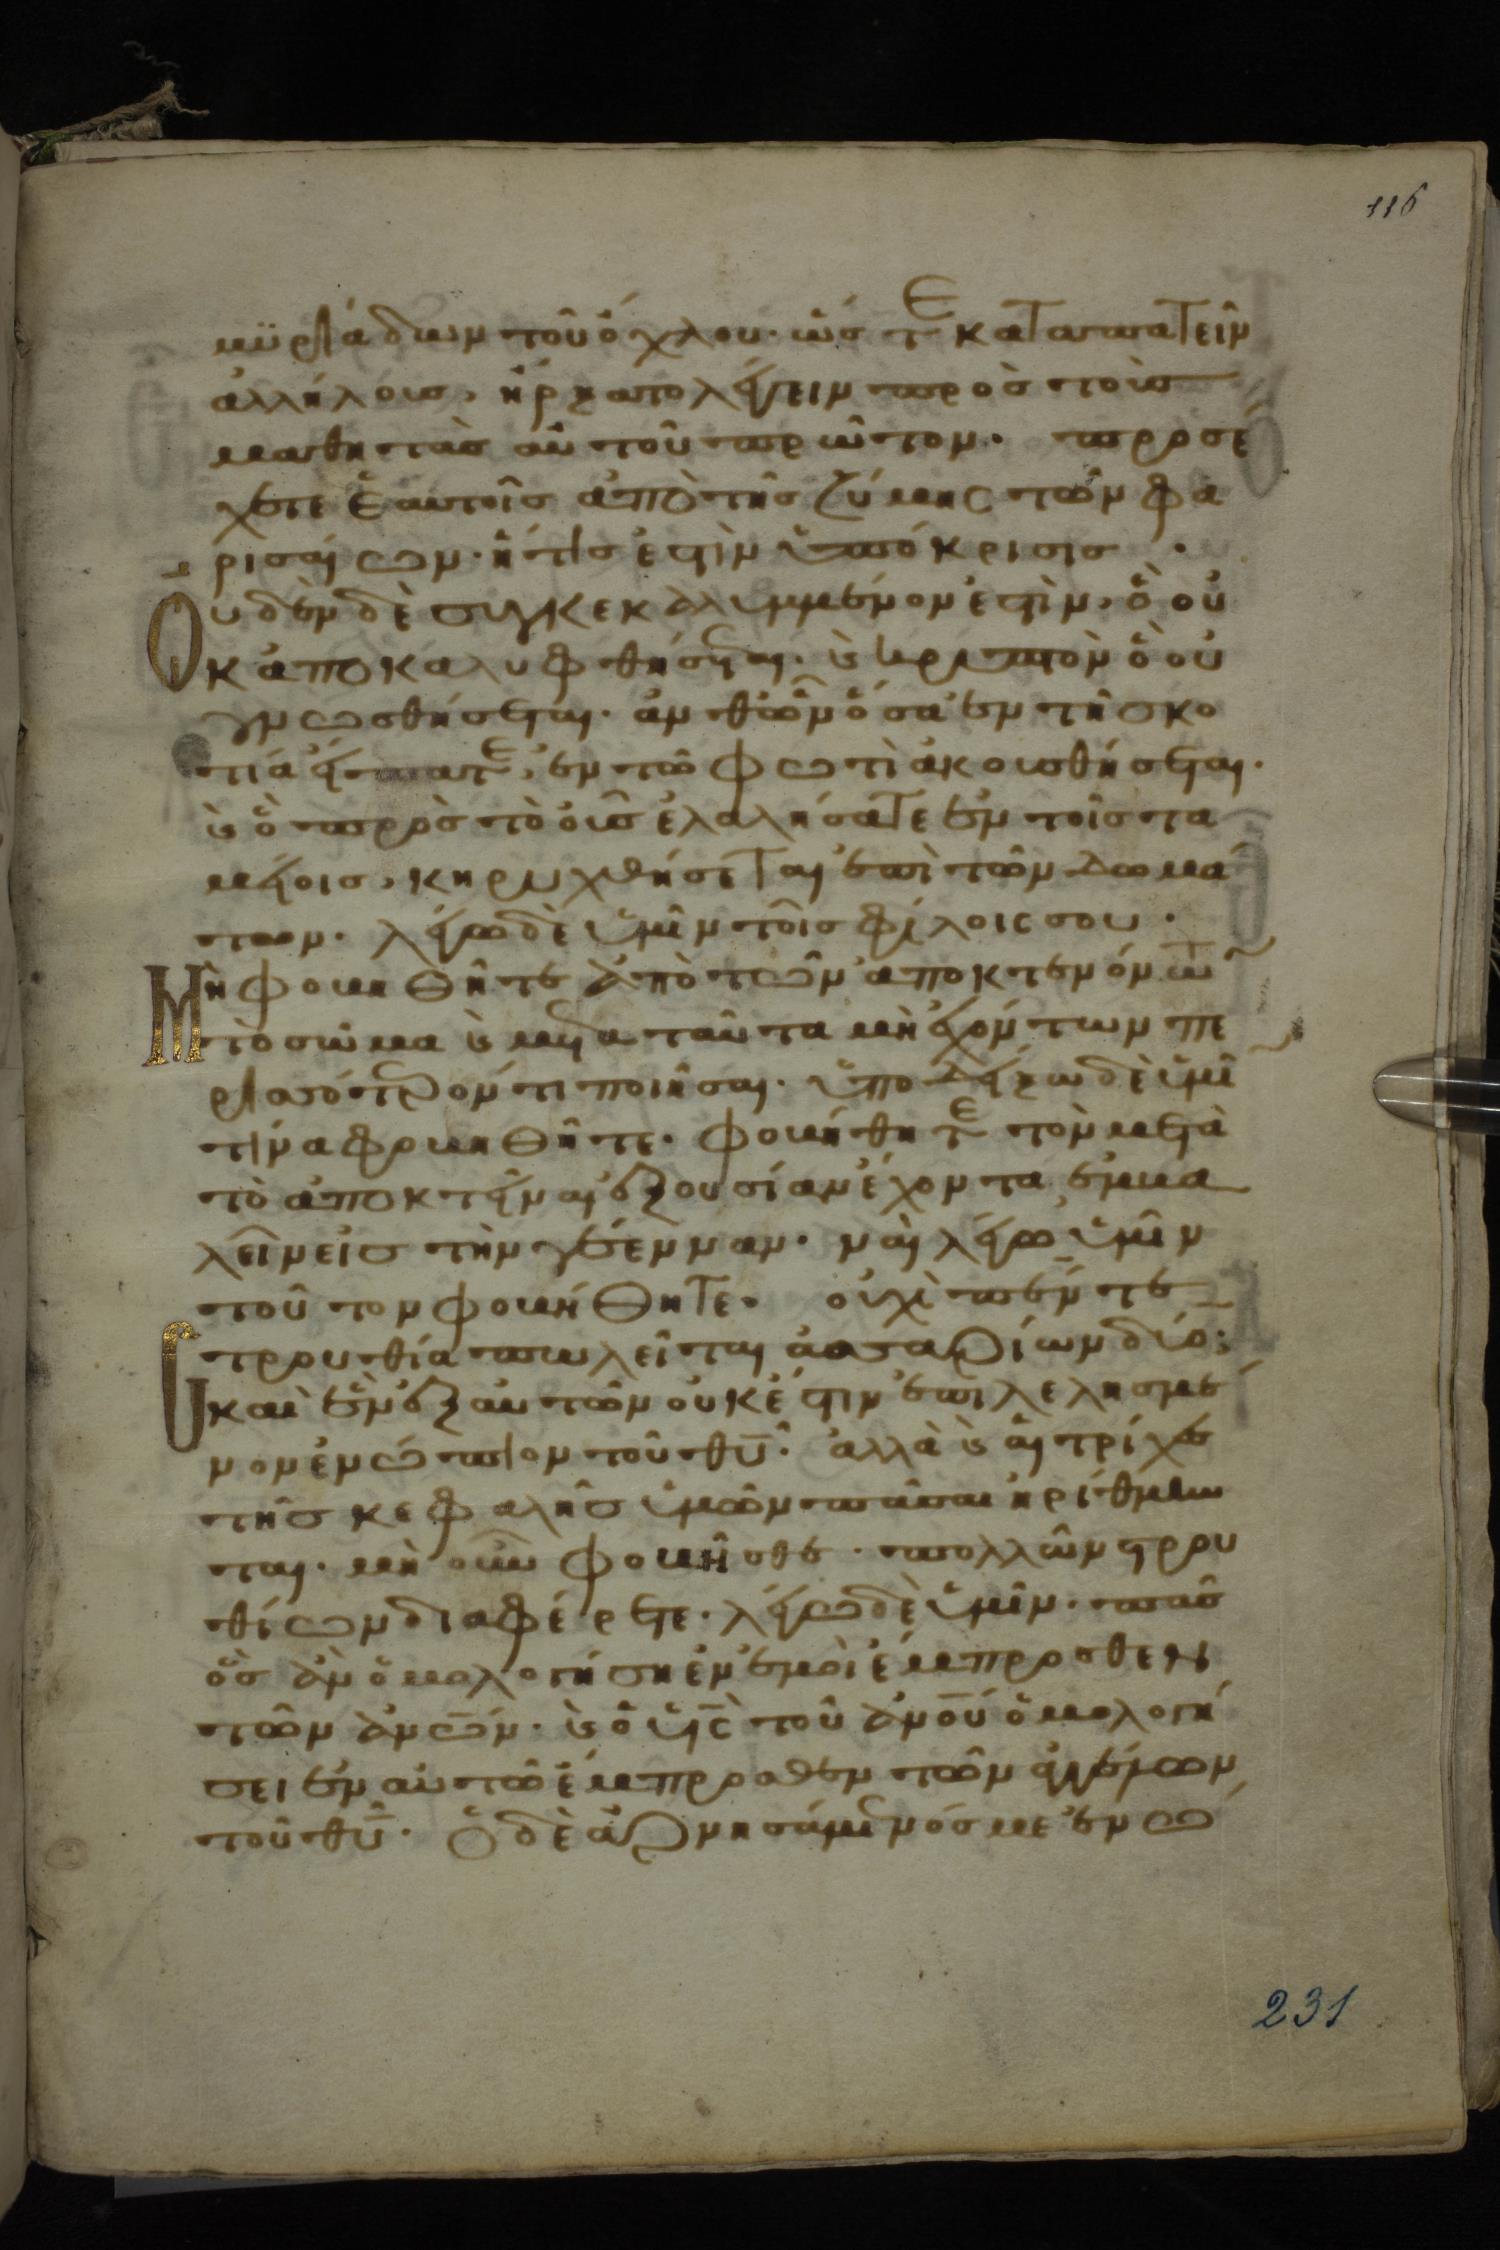 116
μϋριάδων τοῦ ὄχλου· ὥστε καταπατεῖν
ἀλλήλους, ἤρξατο λέγειν πρὸς τοὺς
μαθητὰς αὐτοῦ πρῶτον· προσέ
χετε ἑαυτοῖς ἀπὸ τῆς ζύμης τῶν φα
ρισαίων· ἥτις ἐστὶν ὑπόκρισις ·
Οὐδεν δὲ συγκεκαλυμμένον ἐστὶν, ὃ οὐ
κ ἀποκαλυφθήσεται· ϗ κρυπτὸν ὃ οὐ
γνωσθήσεται· ἀνθῶν ὅσα ἐν τῆ σκο
τία εἴπατε, ἐν τῶ φωτὶ ἀκουσθήσεται·
ϗ ὃ πρὸς τὸ οὖς ἐλαλήσατε ἐν τοῖς τα
μείοις, κηρυχθήσεται ἐπὶ τῶν δωμά
των· λέγω δὲ ὑμῖν τοῖς φίλοις σου ·
Μὴ φοβηθῆτε ἀπὸ τῶν ἀποκτενόντων
τὸ σῶμα ϗ μετα ταῦτα μὴ ἐχόντων πε
ρισσότερόν τι ποιῆσαι· ὑποδείξω δὲ ὑμῖ
τίνα φοβηθῆτε· φοβήθητε τὸν μετὰ
τὸ ἀποκτεῖναι ἐξουσίαν ἔχοντα ἐμβα
λεῖν εἰς τὴν γέενναν· ναὶ λέγω ὑμῖν
τοῦτον φοβήθητε· οὐχὶ πέντε
στρουθία πωλεῖται ἀσσαρίων δύο;
και ἓν ἐξ αὐτῶν οὐκ ἔστιν ἐπιλελησμέ
νον ἐνώπιον τοῦ θῡ· ἀλλὰ ϗ αἱ τρίχες
τῆς κεφαλῆς ὑμῶν πᾶσαι ἠρίθμην
ται· μὴ οὖν φοβῆσθε · πολλῶν στρου
θίων διαφέρετε· λέγω δὲ ὑμῖν· πᾶς
ὃς ἂν ὁμολογήση ἐν ἐμοὶ ἔμπροσθεν
τῶν ἀνω̄ν· ϗ ὁ ὑῑς τοῦ ἀνοῡ ὁμολογή
σει ἐν αὐτῶ ἔμπροσθεν τῶν ἀγγέλων
τοῦ θῡ· Ὁ δὲ ἀρνησάμενός με ἐνώ
231